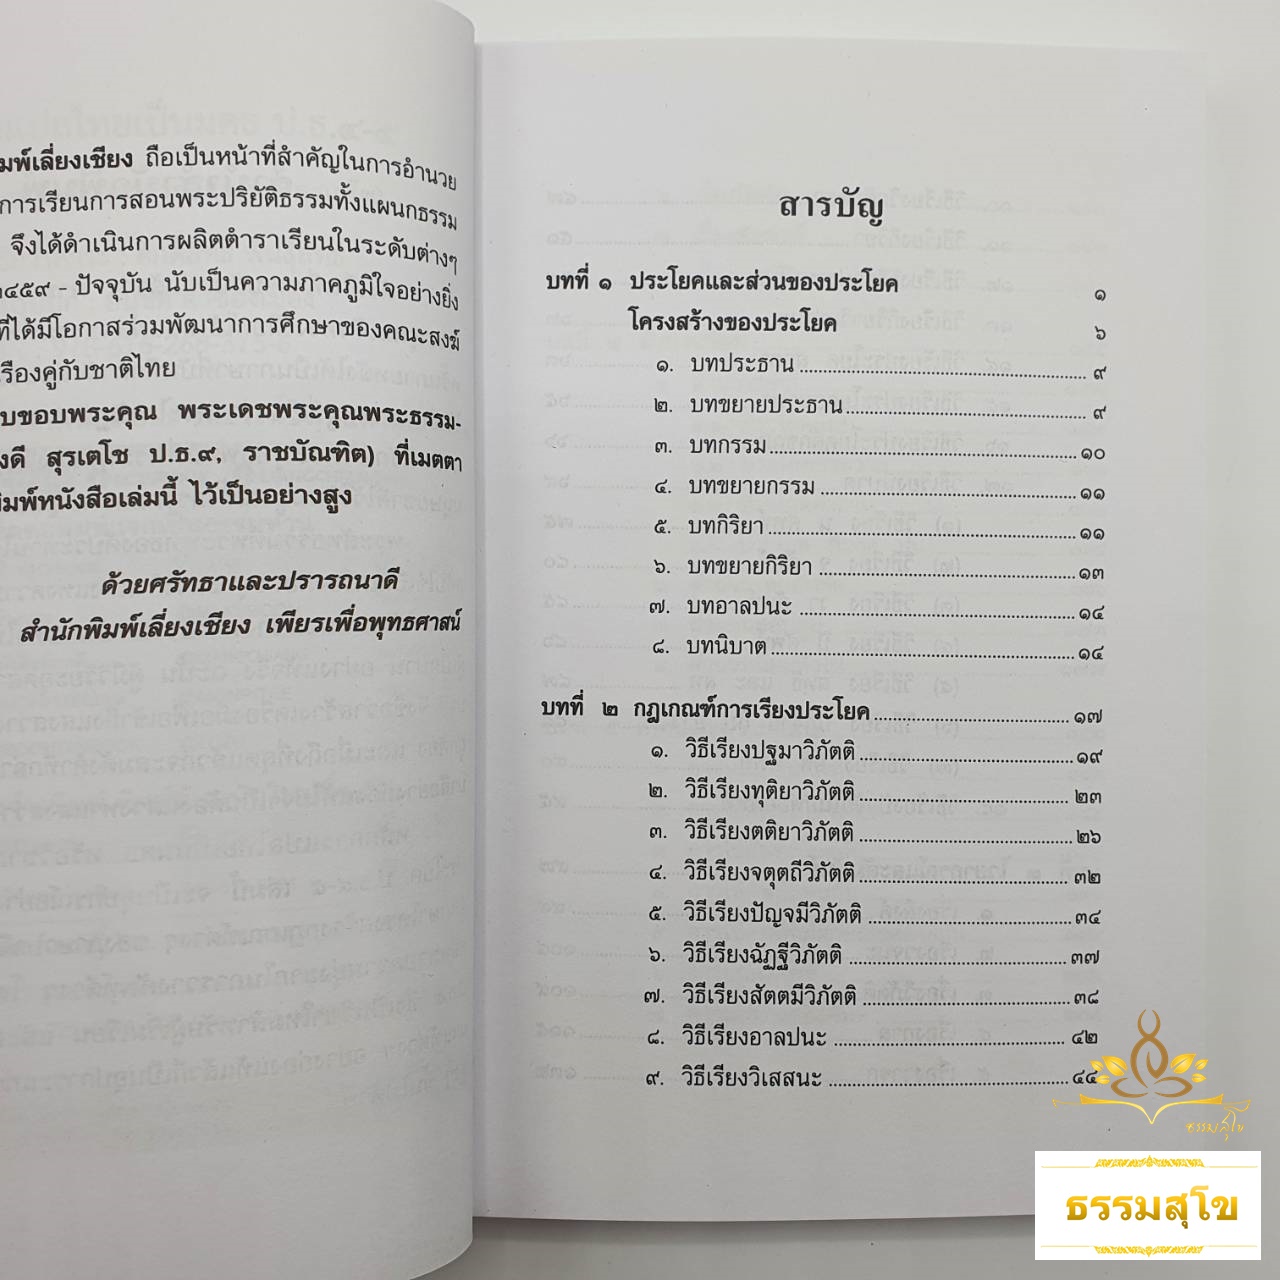 มพ์เลี่ยงเชียง ถือเป็นหน้าที่สำคัญในการอำนวย
การเรียนการสอนพระปริยัติธรรมทั้งแผนกธรรม
จึงได้ดำเนินการผลิตตำราเรียนในระดับต่างๆ
๒๔๕๙ - ปัจจุบัน นับเป็นความภาคภูมิใจอย่างยิ่ง
ที่ได้มีโอกาสร่วมพัฒนาการศึกษาของคณะสงฆ์
เรืองคู่กับชาติไทย
บขอบพระคุณ พระเดชพระคุณพระธรรม-
งดี สุรเตโช ป.ธ.๙, ราชบัณฑิต) ที่เมตตา
พิมพ์หนังสือเล่มนี้ ไว้เป็นอย่างสูง
ด้วยศรัทธาและปรารถนาดี
สำนักพิมพ์เลี่ยงเชียง เพียรเพื่อพุทธศาสน์
สารบัญ
บทที่ ๑ ประโยคและส่วนของประโยค ๑
โครงสร้างของประโยค ๖
๑. บทประธาน ๙
๒. บทขยายประธาน ๙
๓. บทกรรม ๑๐
๔. บทขยายกรรม ๑๑
๕. บทกิริยา ๑๑
๖. บทขยายกิริยา ๑๓
๗. บทอาลปนะ ๑๔
๘. บทนิบาต ๑๔
บทที่ ๒ กฎเกณฑ์การเรียงประโยค ๑๗
๑. วิธีเรียงปฐมาวิภัตติ ๑๙
๒. วิธีเรียงทุติยาวิภัตติ ๒๓
๓. วิธีเรียงตติยาวิภัตติ ๒๖
๔. วิธีเรียงจตุตถีวิภัตติ ๓๒
๕. วิธีเรียงปัญจมีวิภัตติ ๓๔
๖. วิธีเรียงฉัฏฐีวิภัตติ ๓๗
๗. วิธีเรียงสัตตมีวิภัตติ ๓๘
๘. วิธีเรียงอาลปนะ ๔๒
๙. วิธีเรียงวิเสสนะ ๔๔
ธรรมสุโข
ธรรมสุโข